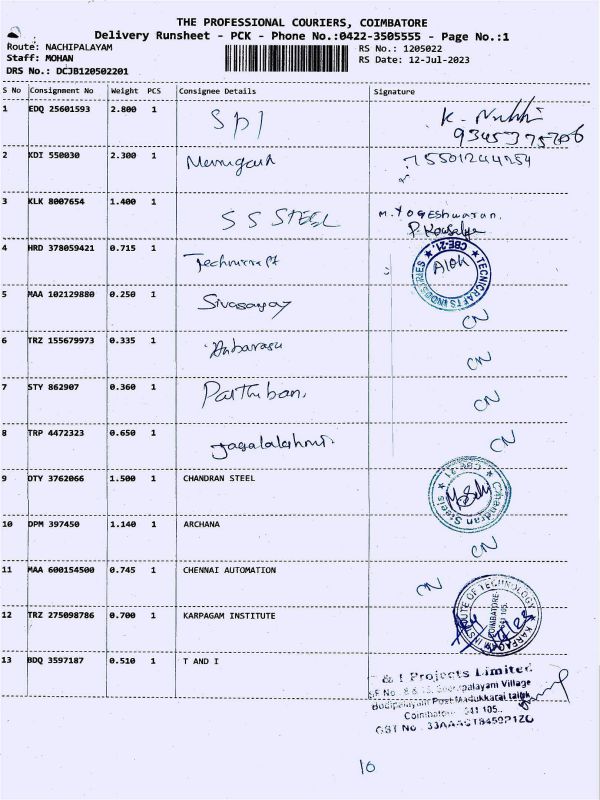 THE PROFESSIONAL COURIERS, COIMBATORE
Delivery Runsheet - PCK - Phone No.:0422-3505555 - Page No.:1
Route: NACHIPALAYAM
RS No.: 1205022
Staff: MOHAN
RS Date: 12-Jul-2023
DRS No.: DCJB120502201
S No Consignment No Weight PCS Consignee Details Signature
1 EDQ 25601593 2.800 1 SPI K.
2 KDI 550030 2.300 1
3 KLK 8007654 1.400 1 S S STEEL M. Yogeshwaran.
P. Kousalya
4 HRD 378059421 0.715 1 Technicraft
CBE-21. TECNICRAFTS INDUSTRIES Alok
5 MAA 102129880 0.250 1 CN
6 TRZ 155679973 0.335 1 Anbarasu CN
7 STY 862907 0.360 1 Parthiban. CN
8 TRP 4472323 0.650 1 CN
9 OTY 3762066 1.500 1 CHANDRAN STEEL
Chandran Steels CBE-21
10 DPM 397450 1.140 1 ARCHANA CN
11 MAA 600154500 0.745 1 CHENNAI AUTOMATION CN
12 TRZ 275098786 0.700 1 KARPAGAM INSTITUTE
KARPAGAM INSTITUTE OF TECHNOLOGY COIMBATORE 105.
13 BDQ 3597187 0.510 1 T AND I
& I Projects Limited
Village
Bodipalayam Post Madukkarai taluk
Coimbatore 641 105.
GST No
10